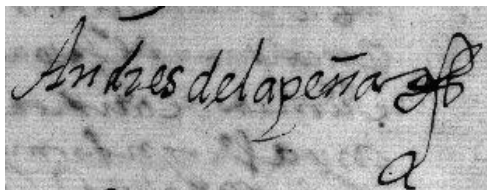 Andres delapeña